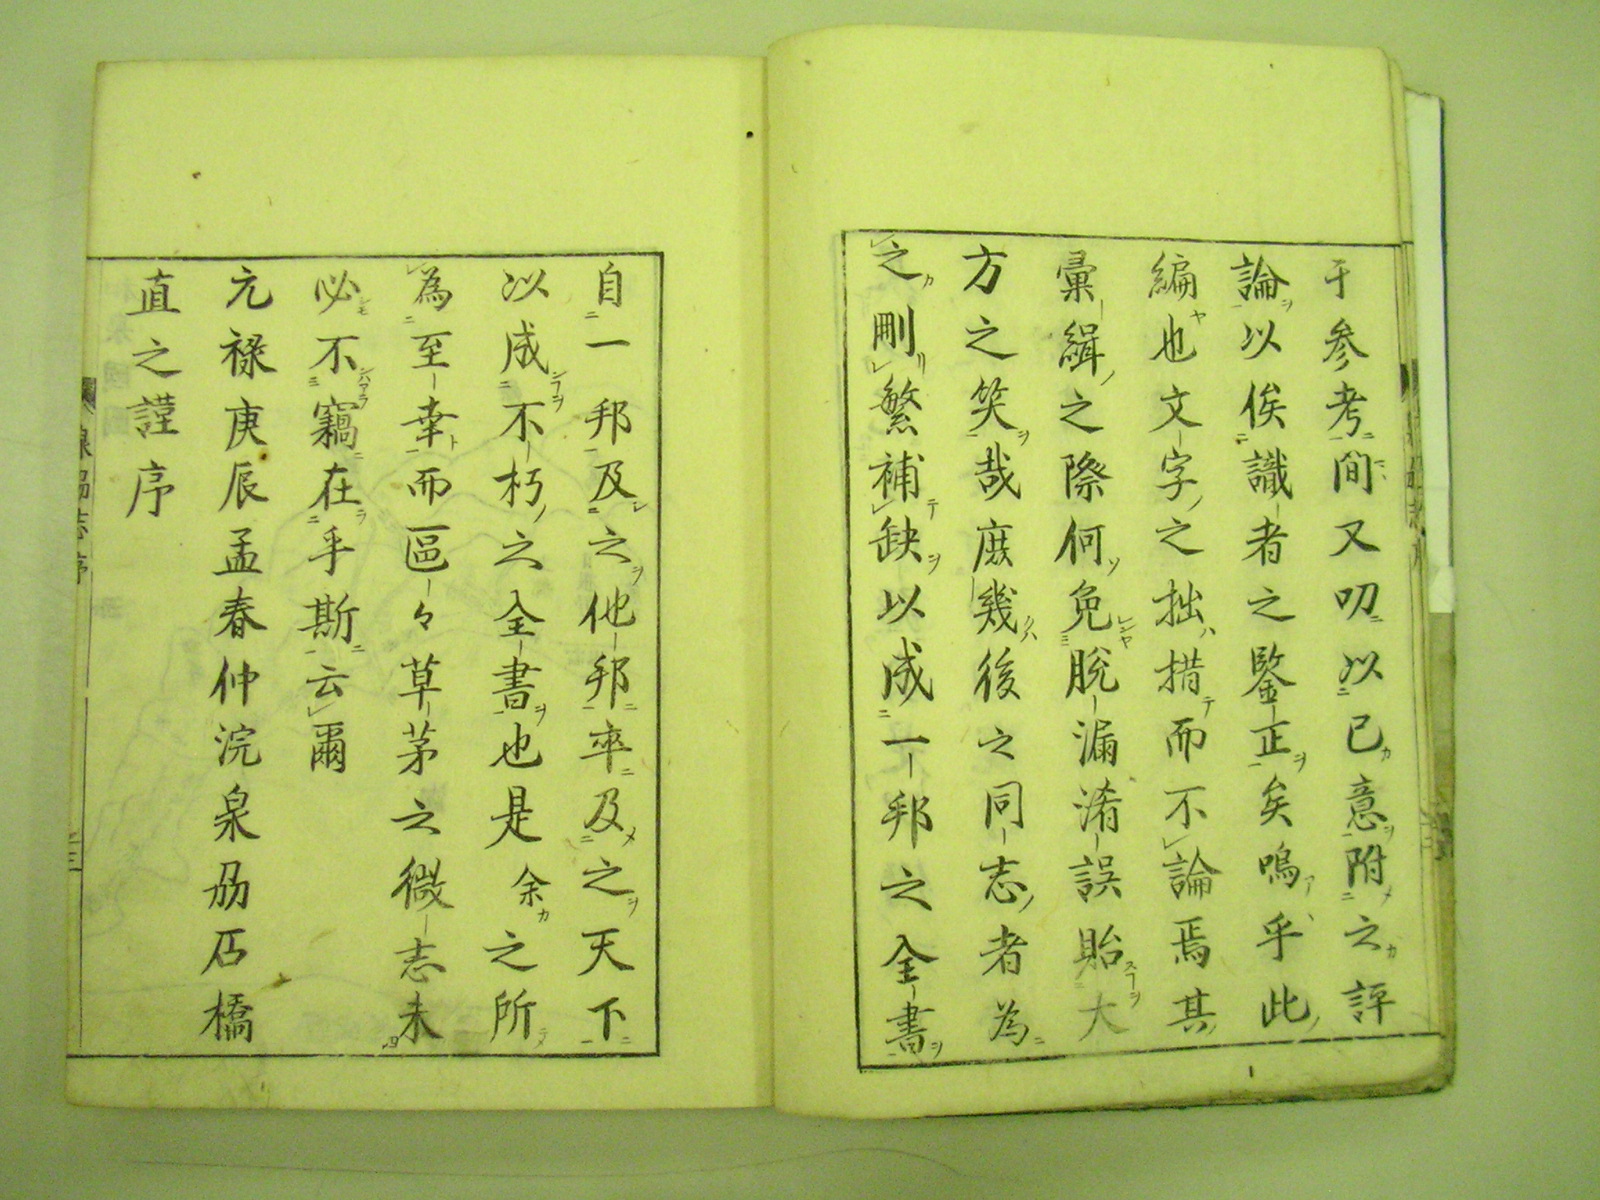 于参考間又叨以已意附之評
論以俟識者之鑒正矣嗚乎此
編也文字之拙措而不論焉其
彙緝之際何免脱漏淆誤貽大
方之笑哉庶幾後之同志者為
之刪繁補缺以成一邦之全書
自一邦及之他邦卒及之天下
以成不朽之全書也是余之所
為至幸而區々草茅之微志未
必不竊在乎斯云爾
元禄庚辰孟春仲浣泉刕石橋
直之謹序